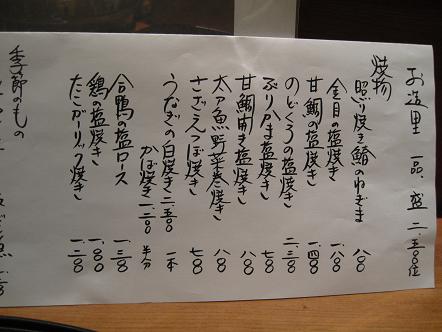 お造里 一品、盛 二、五〇〇位
焼物
照り焼き鰆のねぎま 八〇〇
金目の塩焼き 一、八〇〇
甘鯛の塩焼き 一、四〇〇
のどくろの塩焼き 二、三〇〇
ぶりかま塩焼き 七〇〇
甘鯛開き塩焼き 八〇〇
太刀魚野菜巻焼き 八〇〇
さざえつぼ焼き 七〇〇
うなぎの白焼き 二、五〇〇 一本
かば焼き 一、二〇〇 半分
合鴨の塩ロース 一、三〇〇
鶏の塩焼き 一、八〇〇
たこガーリック焼き 一、二〇〇
季節のもの